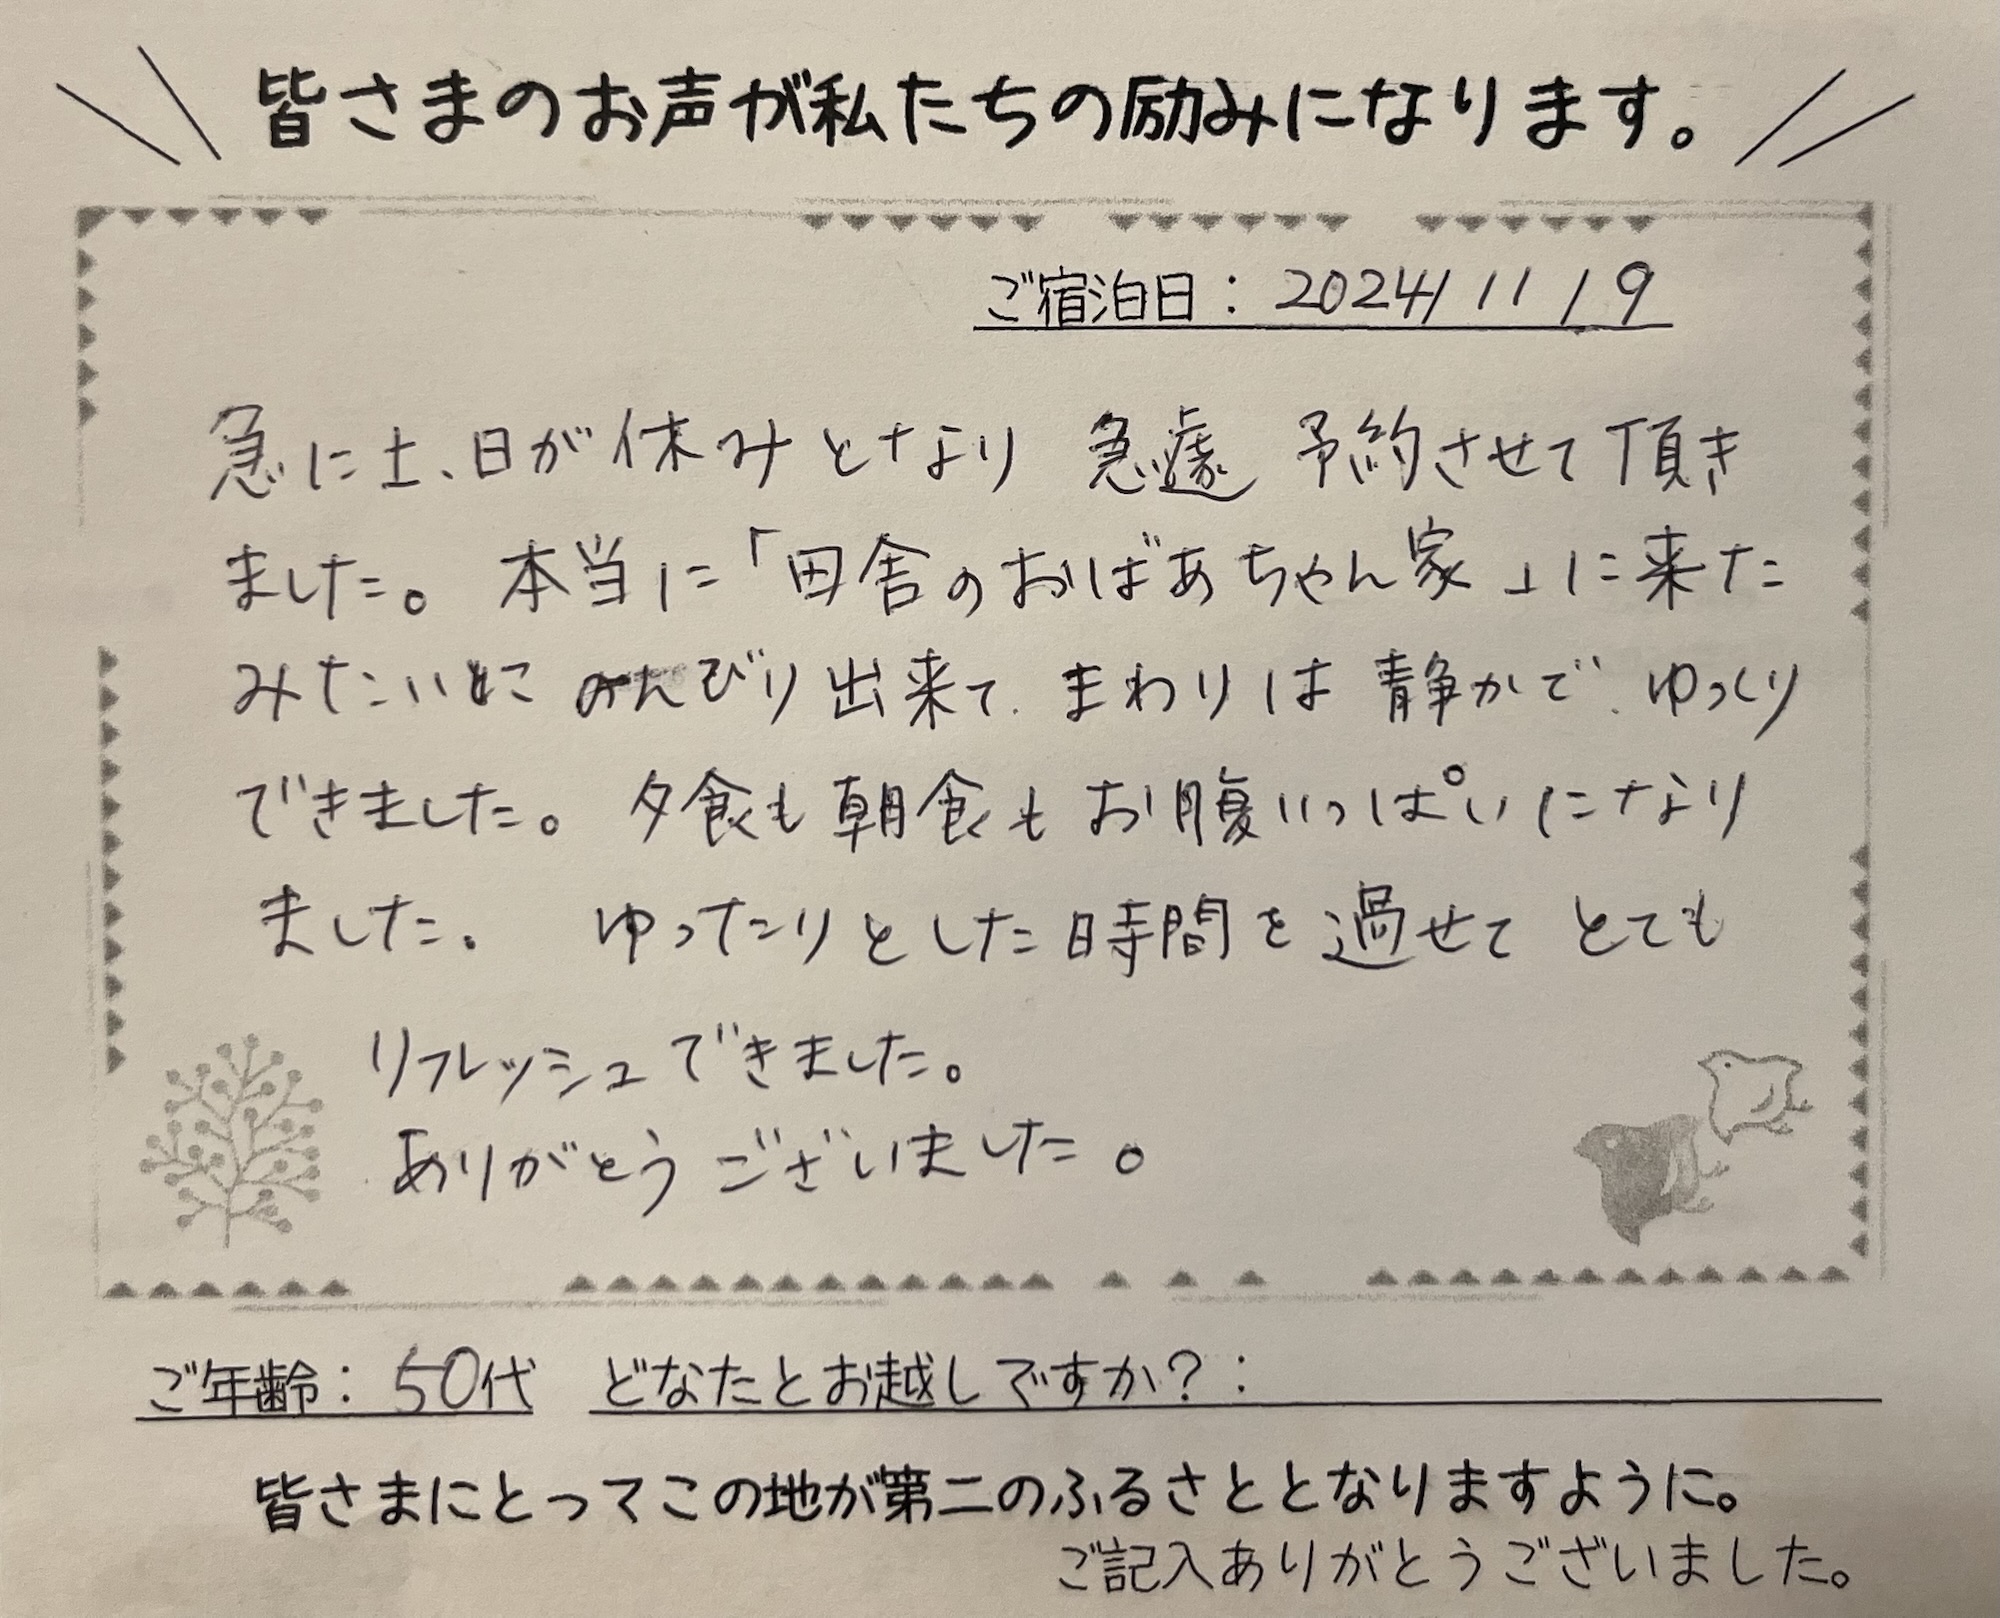 皆さまのお声が私たちの励みになります。
ご宿泊日：2024/11/9
急に土、日が休みとなり 急遽 予約させて頂き
ました。本当に「田舎のおばあちゃん家」に来た
みたいに のんびり出来て、まわりは静かで、ゆっくり
できました。夕食も朝食もお腹いっぱいになり
ました。 ゆったりとした時間を過せて とても
リフレッシュできました。
ありがとうございました。
ご年齢：50代 どなたとお越しですか？：
皆さまにとってこの地が第二のふるさととなりますように。
ご記入ありがとうございました。